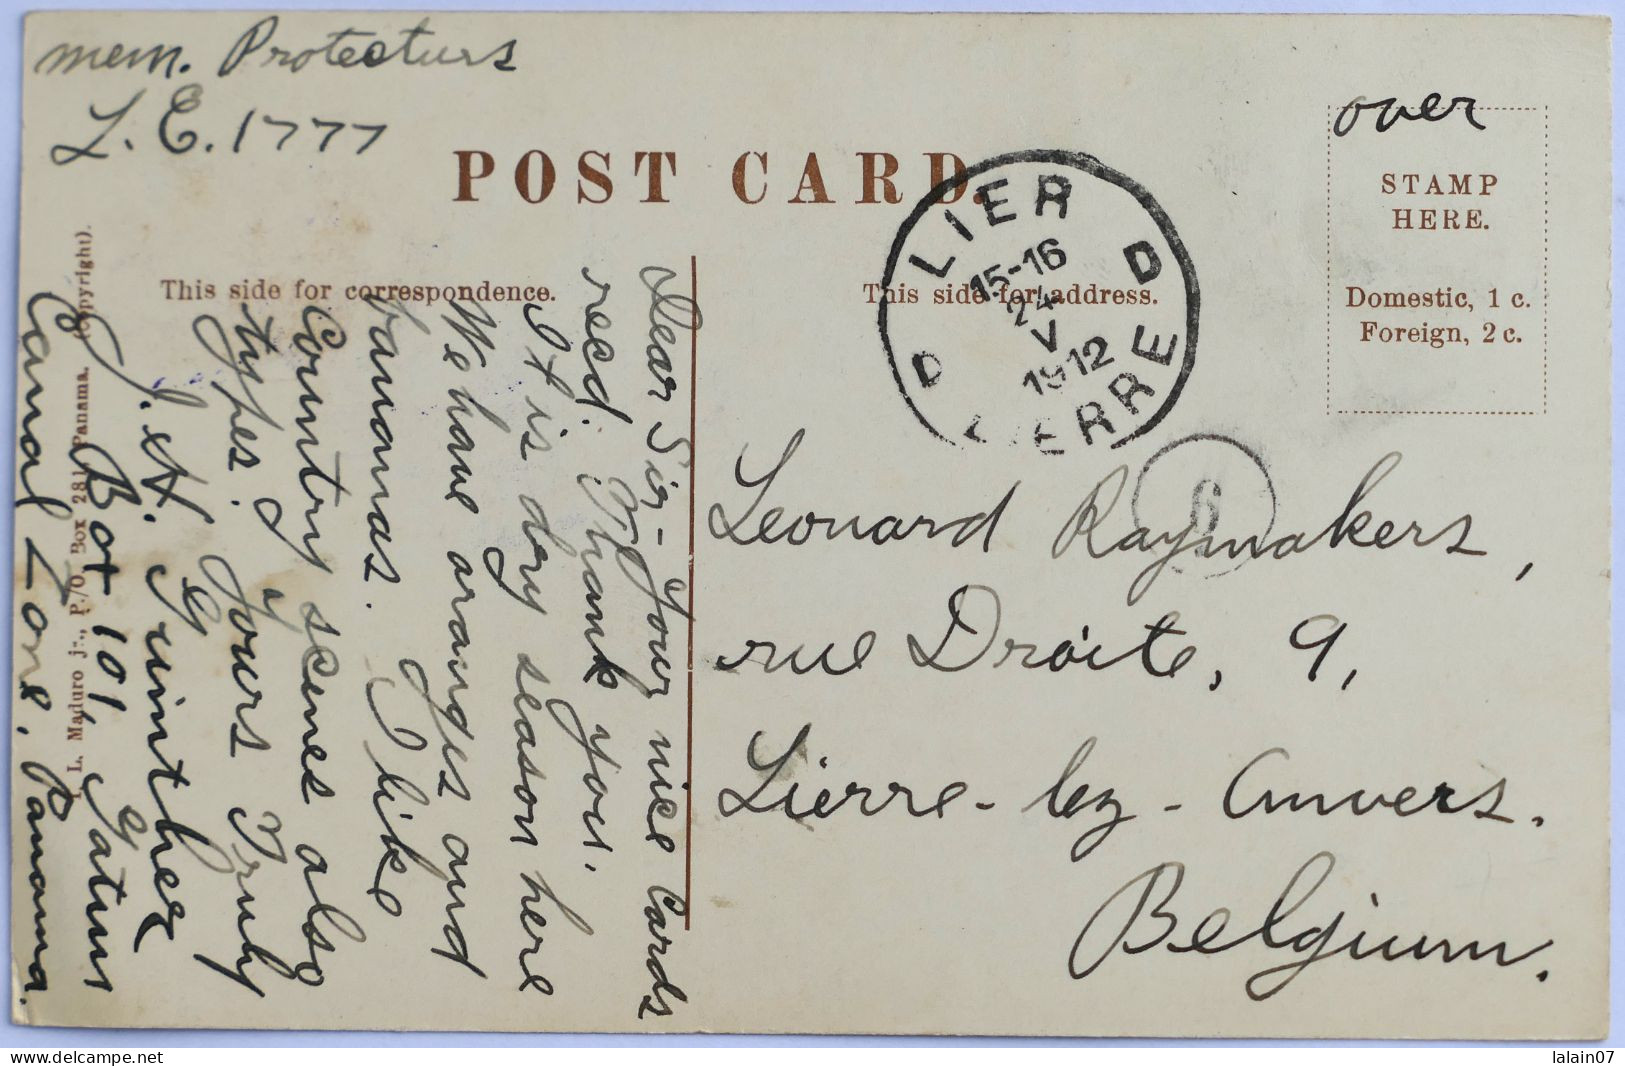 mem. Protecturs
L. E. 1777
POST CARD.
over
STAMP
HERE.
Domestic, 1 c.
Foreign, 2 c.
This side for correspondence.
This side for address.
LIER
15-16
24
V
1912
LIERRE
D D
6
Dear Sir - Your nice Cards
recd. Thank you.
It is dry season here
We have oranges and
bananas. I like
Country scenes also
types. Yours Truly
J. H. Guinther
Box 101, Gatun
Canal Zone, Panama.
I. L. Maduro jr., P./O. Box 281 Panama. (Copyright).
Leonard Raymakers,
rue Droite, 9,
Lierre - lez - Anvers.
Belgium.
lalain07